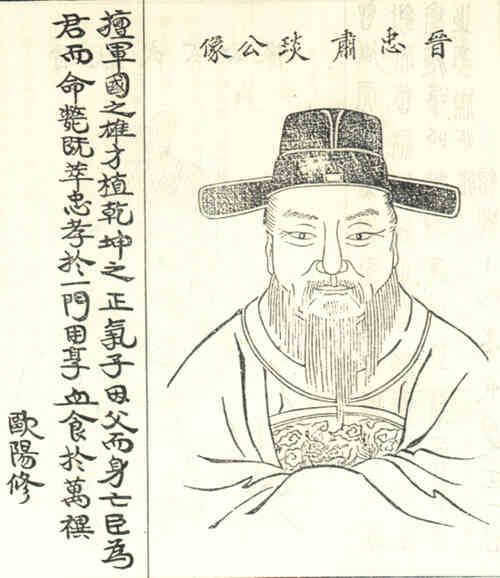 晉忠肅琰公像
擅軍國之雄才植乾坤之正氣子毋父而身亡臣為
君而命斃既萃忠孝於一門用享血食於萬禩
歐陽修